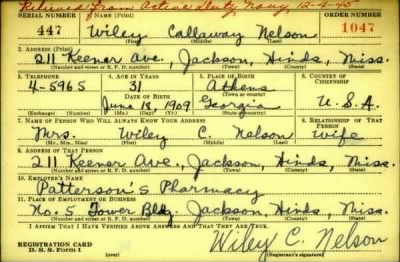 Relieved from Active duty Navy 12-4-45
SERIAL NUMBER 1. NAME (Print) ORDER NUMBER
447 Wiley Callaway Nelson 1047
2. ADDRESS (Print)
211 Keener Ave., Jackson, Hinds, Miss.
(Number and street or R. F. D. number) (Town) (County) (State)
3. TELEPHONE 4. AGE IN YEARS 5. PLACE OF BIRTH 6. COUNTRY OF CITIZENSHIP
4-5965 31 Athens
DATE OF BIRTH (Town or county)
June 18, 1909 Georgia U.S.A.
7. NAME OF PERSON WHO WILL ALWAYS KNOW YOUR ADDRESS 8. RELATIONSHIP OF THAT PERSON
Mrs. Wiley C. Nelson Wife
(Mr., Mrs., Miss) (First) (Middle) (Last)
9. ADDRESS OF THAT PERSON
211 Keener Ave., Jackson, Hinds, Miss.
(Number and street or R. F. D. number) (Town) (County) (State)
10. EMPLOYER'S NAME
Patterson's Pharmacy
11. PLACE OF EMPLOYMENT OR BUSINESS
No. 5 Tower Bldg. Jackson, Hinds, Miss.
(Number and street or R. F. D. number) (Town) (County) (State)
I AFFIRM THAT I HAVE VERIFIED ABOVE ANSWERS AND THAT THEY ARE TRUE.
Wiley C. Nelson
REGISTRATION CARD
D. S. S. Form 1 (over) (Registrant's signature)